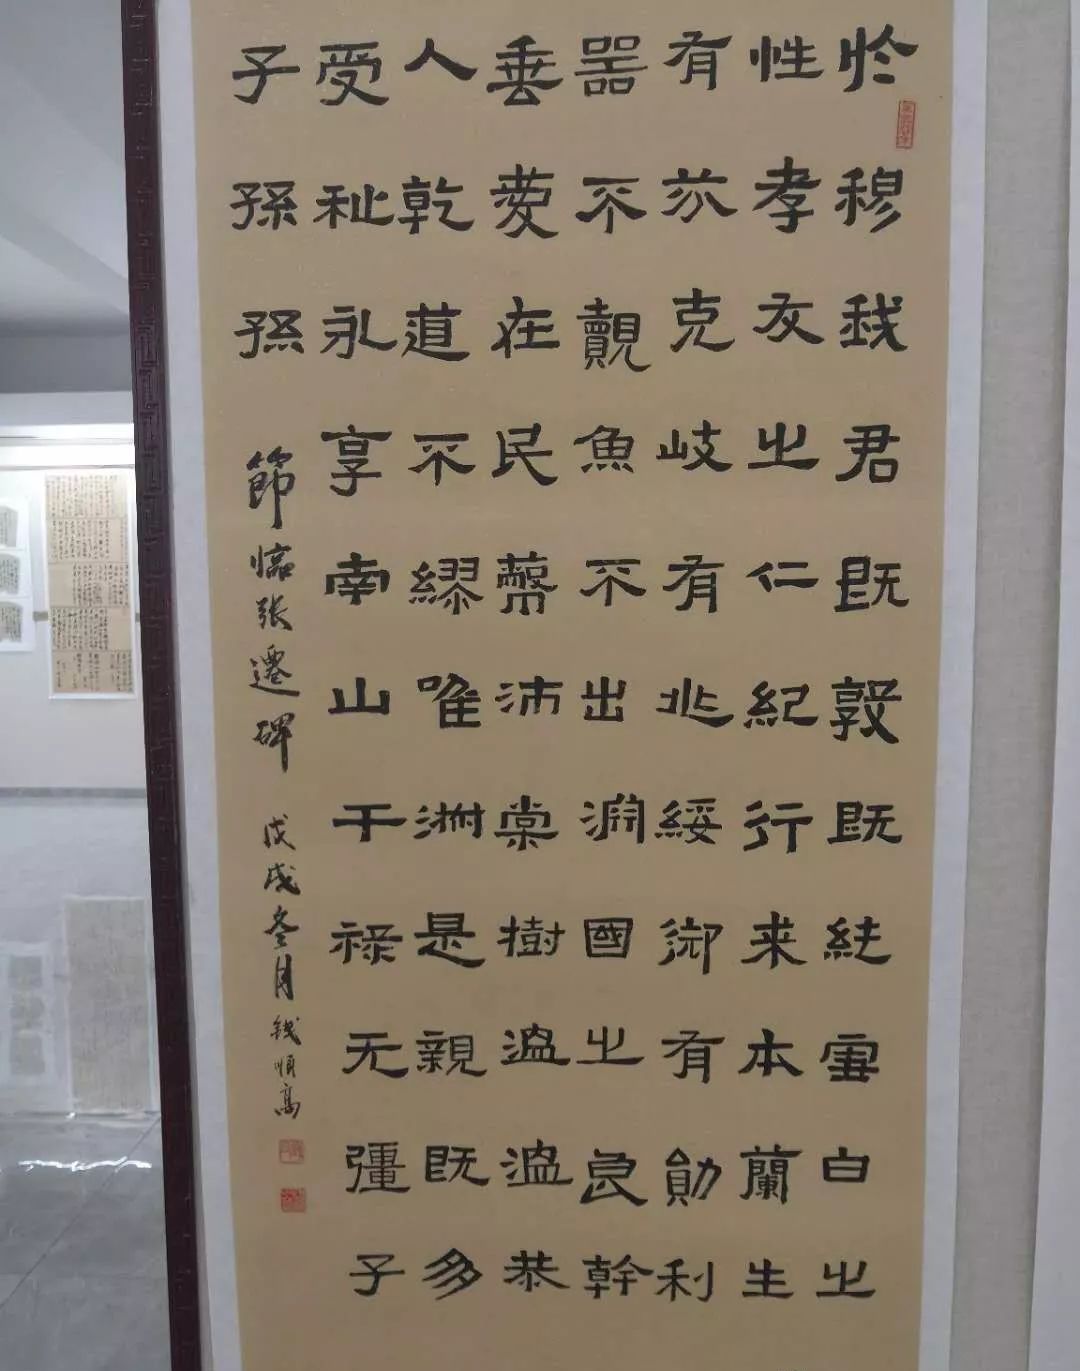 於穆我君既敦既純雪白之
性孝友之仁紀行来本蘭生
有芬克岐有兆綏御有勛利
器不覿魚不出淵國之良幹
垂愛在民蔽沛棠樹溫溫恭
人乾道不繆唯淑是親既多
受祉永享南山干祿无彊子
子孫孫
節臨張遷碑 戊戌冬月 錢順高